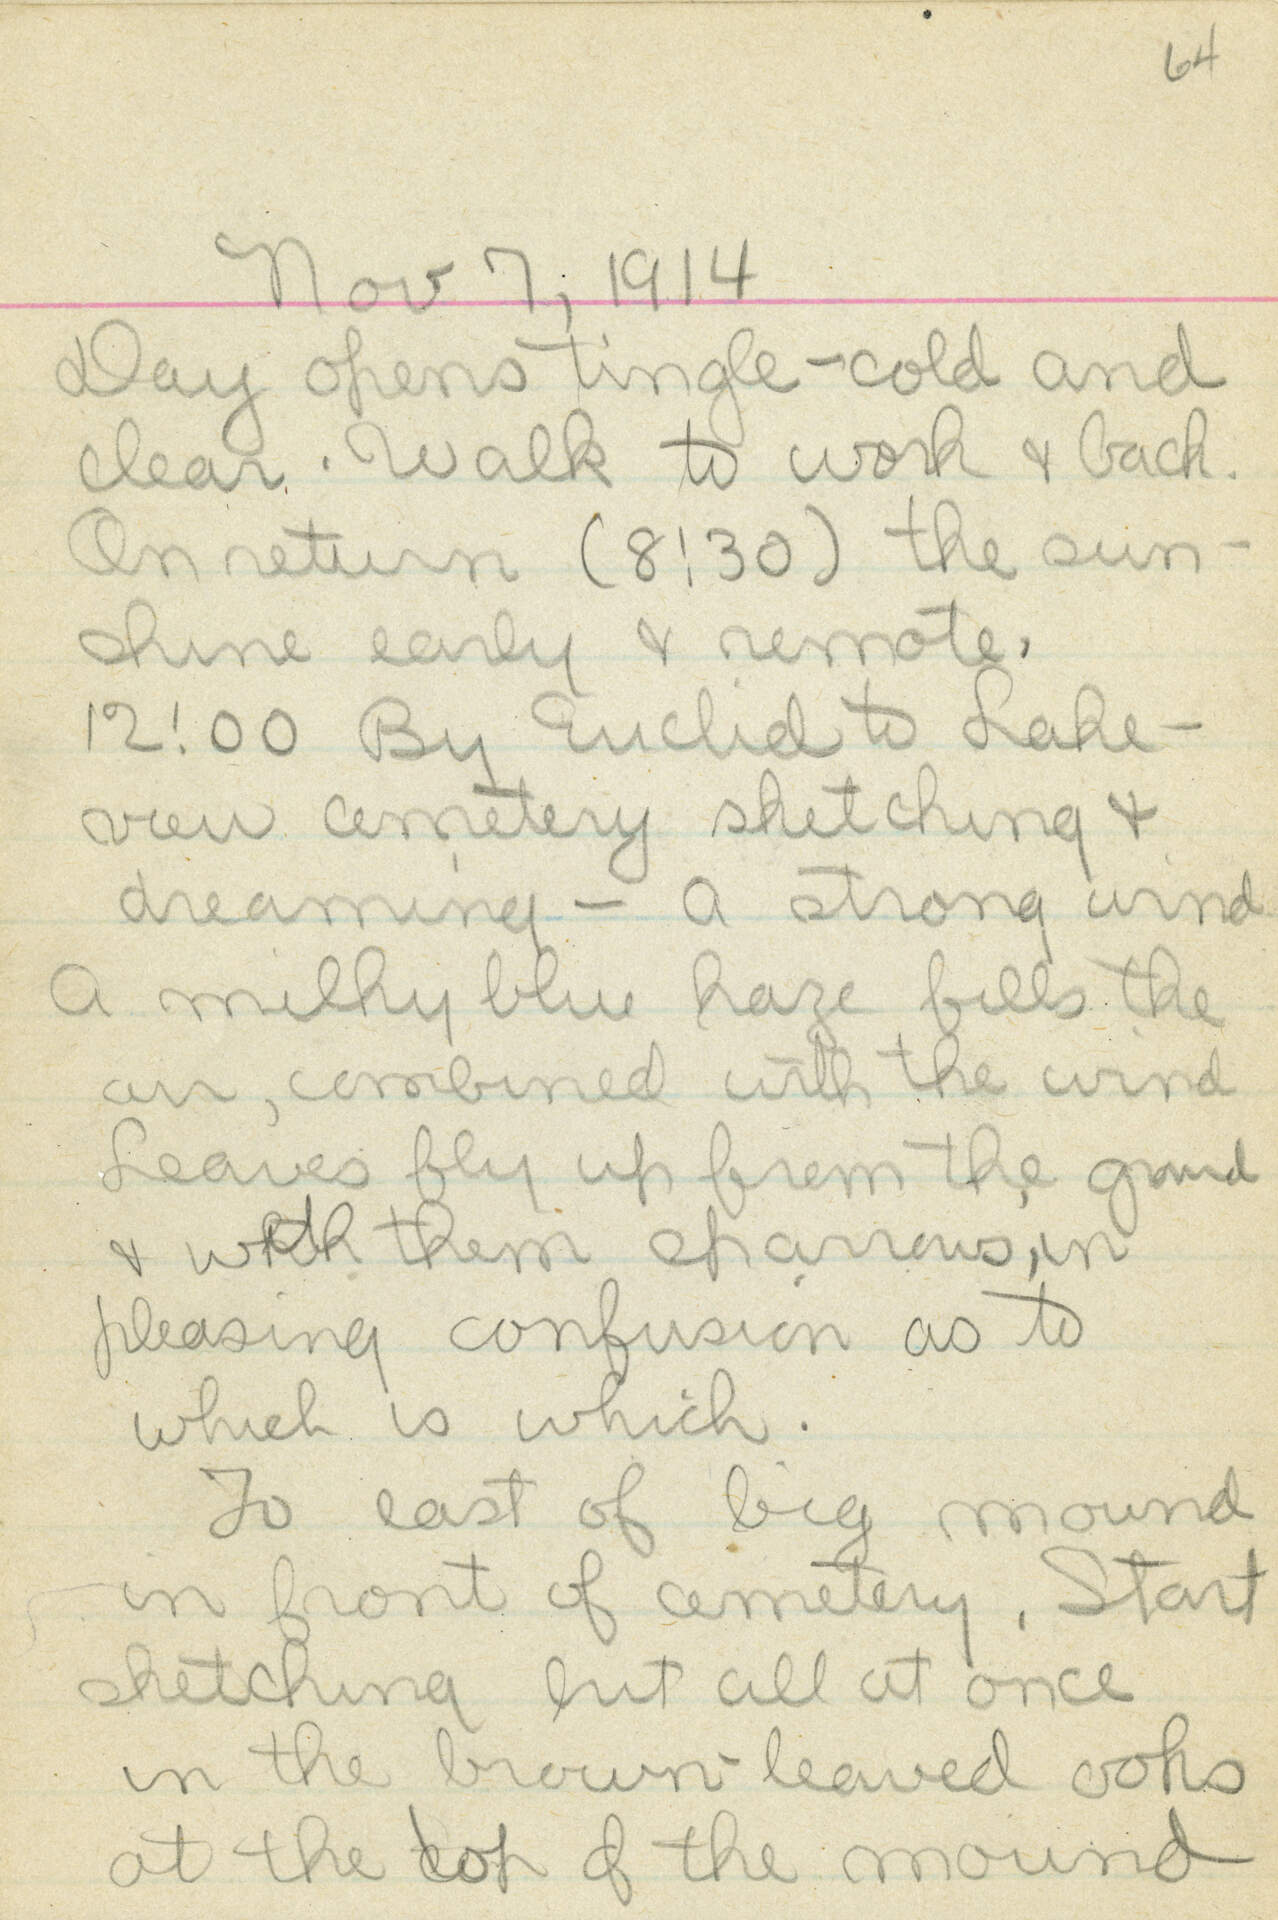 64
Nov 7, 1914
Day opens tingle-cold and
clear. Walk to work & back.
On return (8:30) the sun-
shine early & remote.
12:00 By Euclid to Lake-
view cemetery sketching &
dreaming - A strong wind
A milky blue haze fills the
air, combined with the wind
Leaves fly up from the ground
& with them sparrows, in
pleasing confusion as to
which is which.
To east of big mound
in front of cemetery. Start
sketching but all at once
in the brown-leaved oaks
at the top of the mound